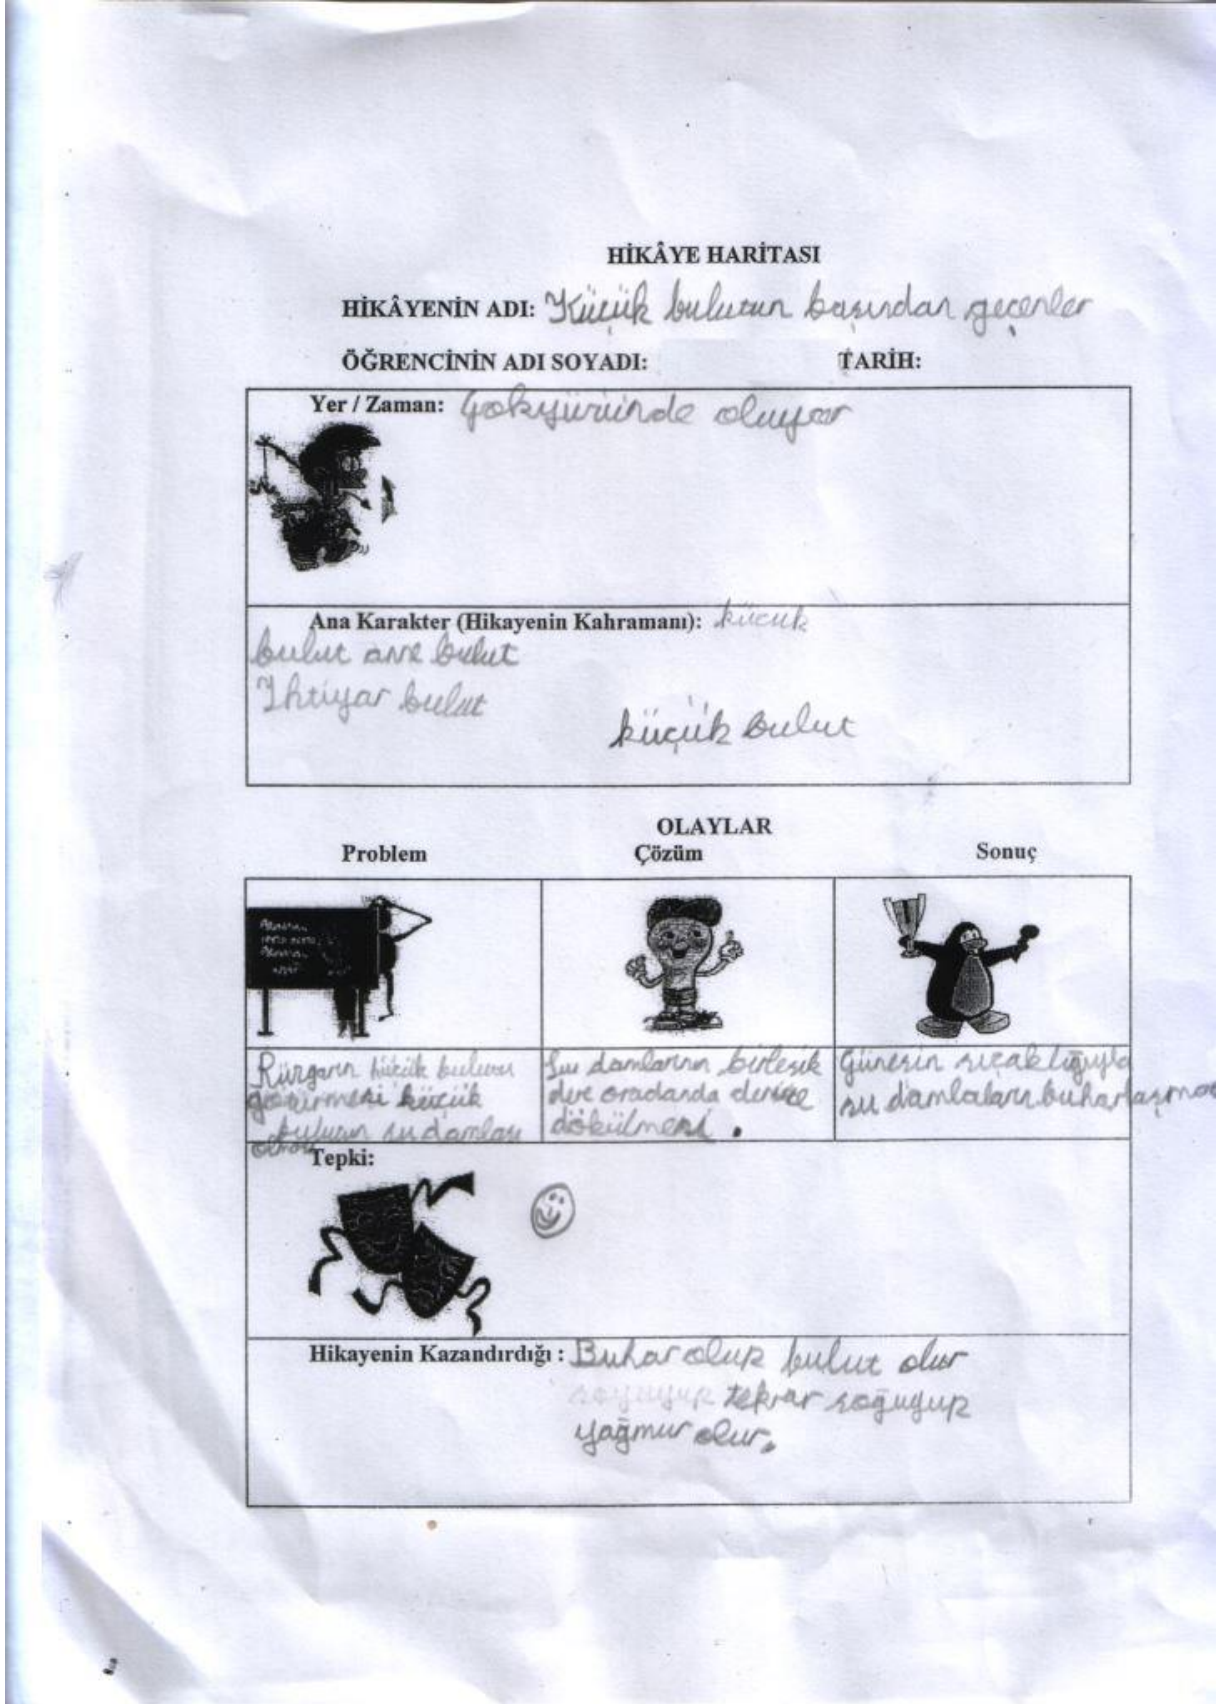 HİKÂYE HARİTASI
HİKÂYENİN ADI: Küçük bulutun başından geçenler
ÖĞRENCİNİN ADI SOYADI: TARİH:
Yer / Zaman: Gökyüzünde oluyor
Ana Karakter (Hikayenin Kahramanı): küçük
bulut anne bulut
Ihtiyar bulut
küçük bulut
OLAYLAR
Problem Çözüm Sonuç
Rüzgarın küçük bulutu
götürmesi küçük
bulutun su damlası
olması
Su damlarının birleşik
dere oradanda denize
dökülmesi.
Güneşin sıcaklığıyla
su damlaların buharlaşması
Tepki:
Hikayenin Kazandırdığı : Buhar olup bulut olur
soyuyup tekrar soğuyup
yağmur olur.